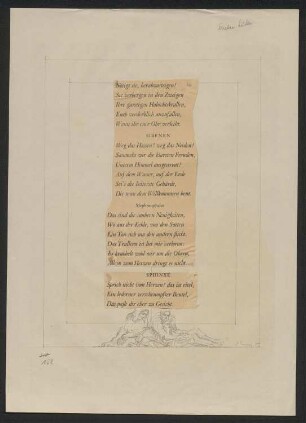 Nötigt sie, herabzusteigen!
Sie verbergen in den Zweigen
Ihre garstigen Habichtskrallen,
Euch verderblich anzufallen,
Wenn ihr euer Ohr verleiht.
SIRENEN
Weg das Hassen! weg das Neiden!
Sammeln wir die klarsten Freuden,
Unterm Himmel ausgestreut!
Auf dem Wasser, auf der Erde
Sei's die heiterste Gebärde,
Die man dem Willkommnen beut.
Mephistopheles
Das sind die saubern Neuigkeiten,
Wo aus der Kehle, von den Saiten
Ein Ton sich um den andern flicht.
Das Trallern ist bei mir verloren:
Es krabbelt wohl mir um die Ohren,
Allein zum Herzen dringt es nicht.
SPHINXE
Sprich nicht vom Herzen! das ist eitel;
Ein lederner verschrumpfter Beutel,
Das paßt dir eher zu Gesicht.